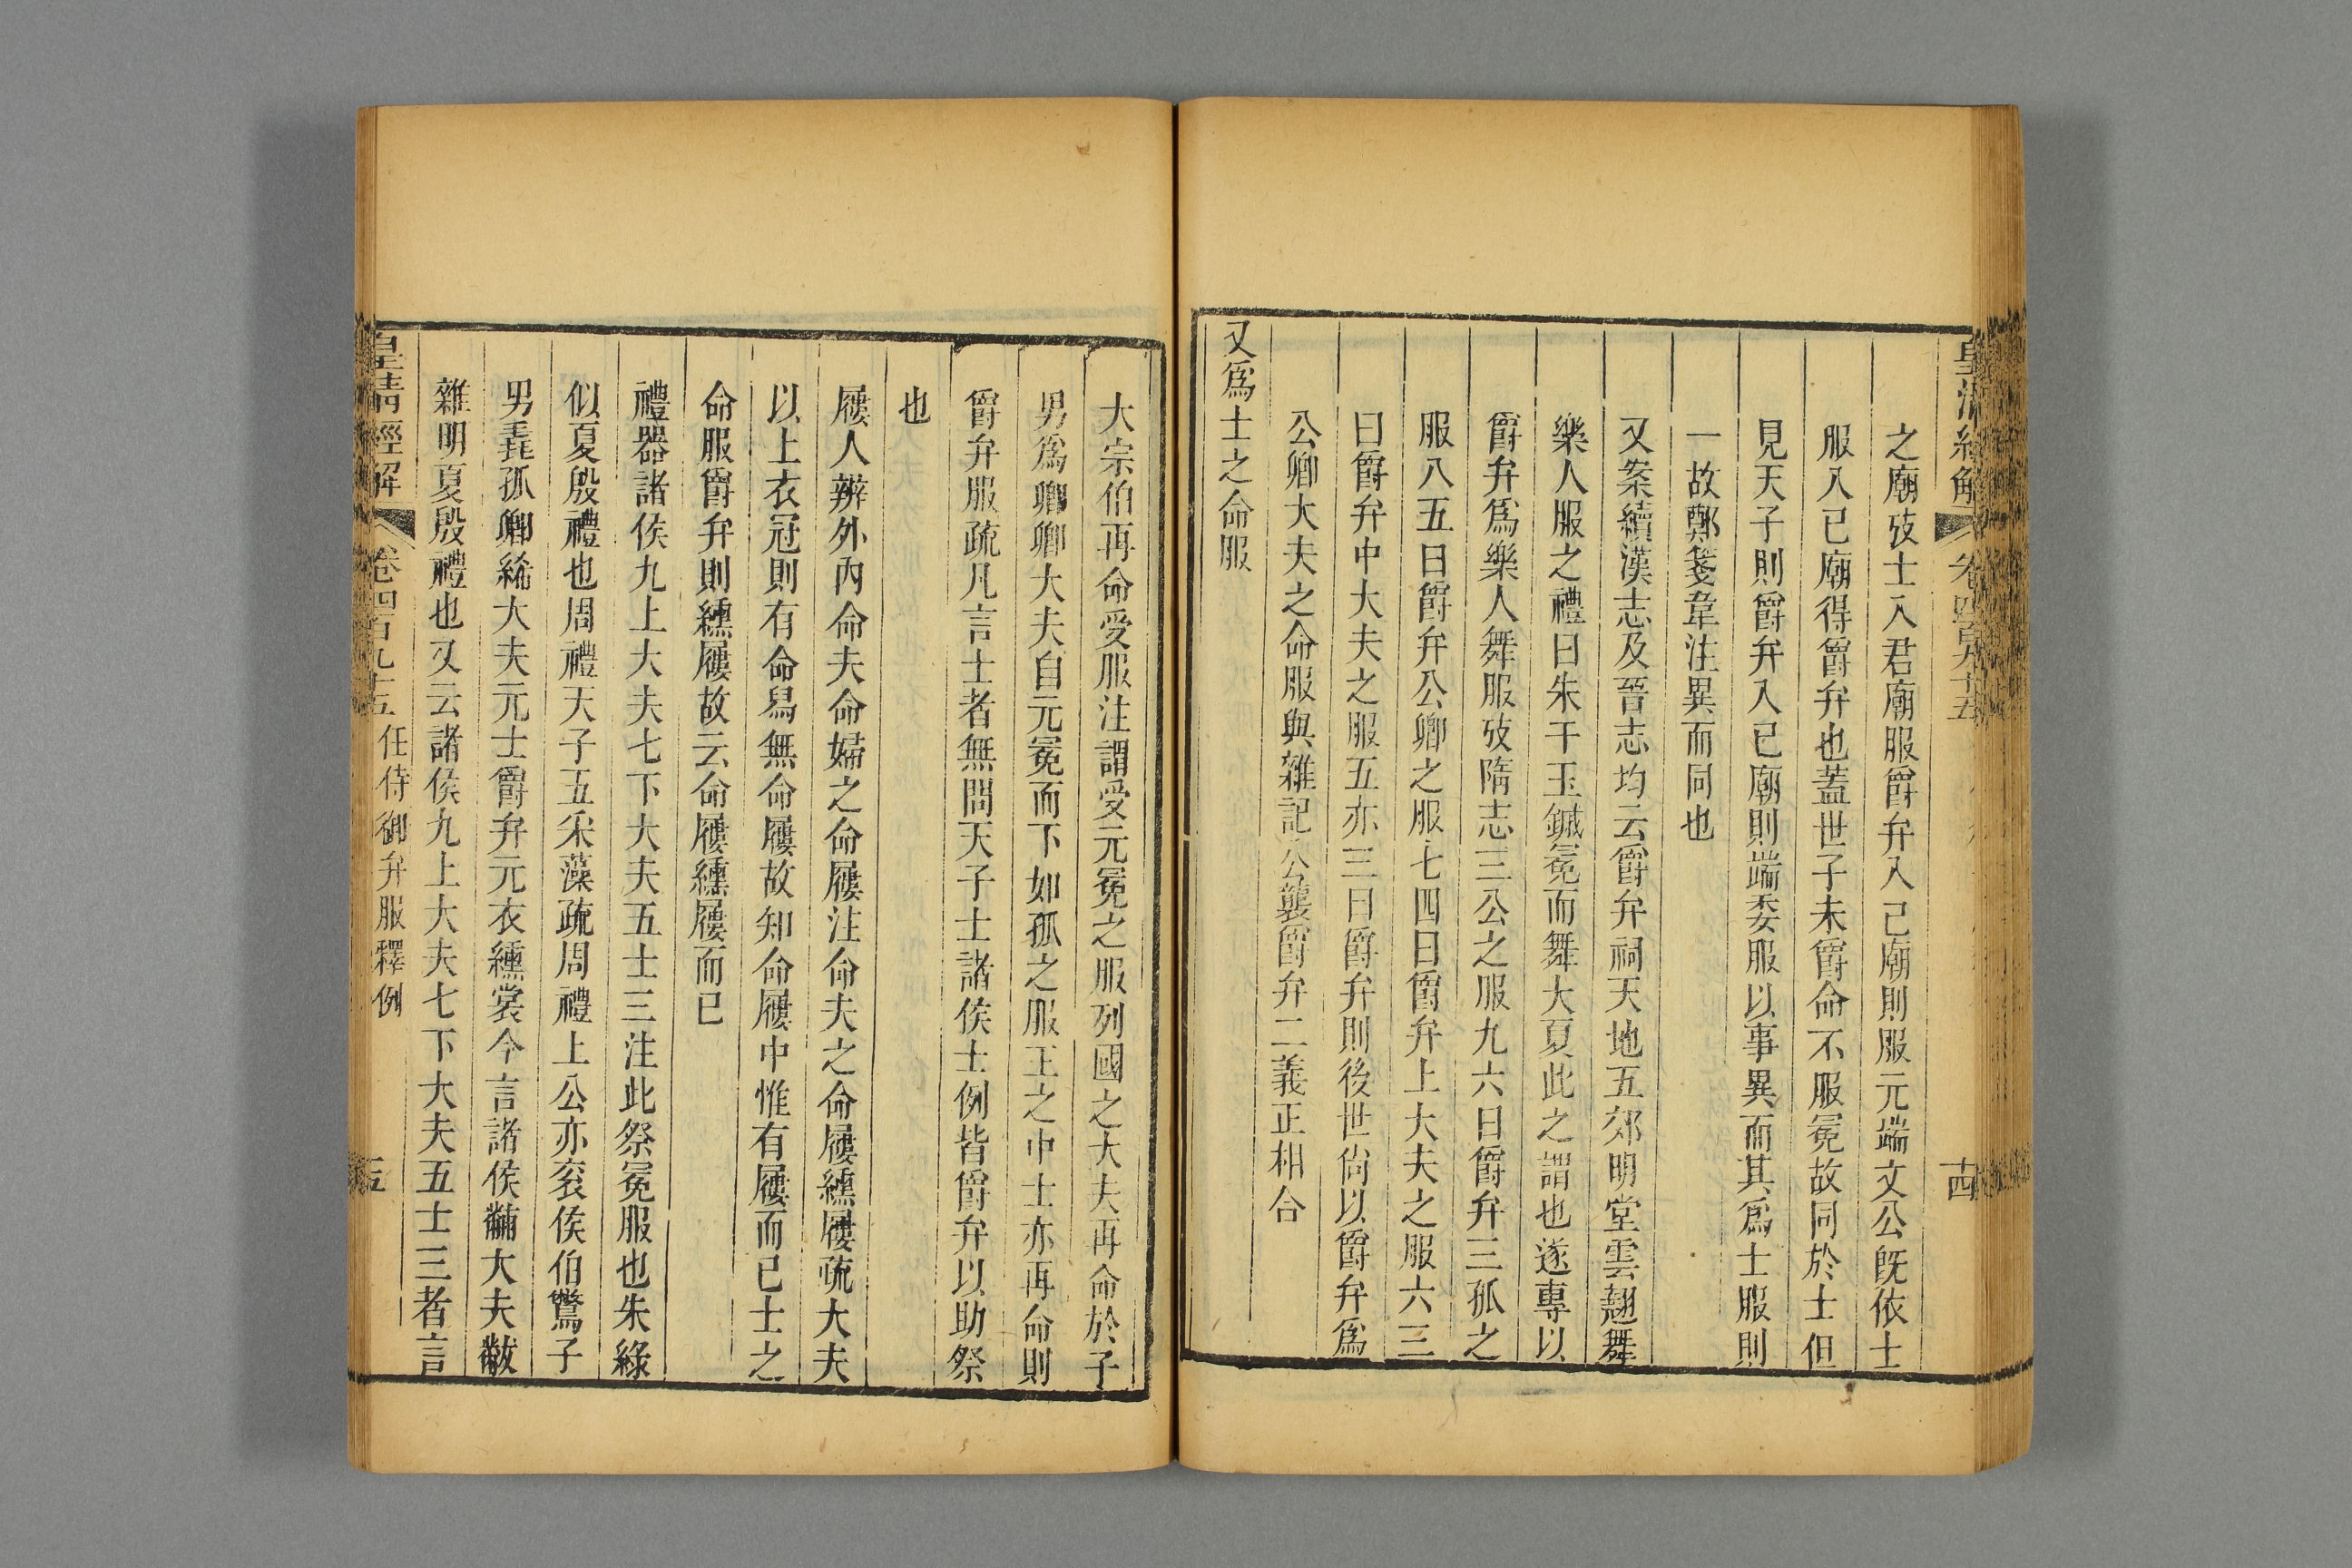 皇清經解 卷四百九十五 十四
之廟攷士入君廟服爵弁入己廟則服元端文公旣依士
服入已廟得爵弁也蓋世子未爵命不服冕故同於士但
見天子則爵弁入已廟則端委服以事異而其爲士服則
一故鄭箋韋注異而同也
又案續漢志及晉志均云爵弁祠天地五郊明堂雲翹舞
樂人服之禮曰朱干玉鏚冕而舞大夏此之謂也遂專以
爵弁爲樂人舞服攷隋志三公之服九六曰爵弁三孤之
服八五曰爵弁公卿之服七四曰爵弁上大夫之服六三
曰爵弁中大夫之服五亦三曰爵弁則後世尙以爵弁爲
公卿大夫之命服與雜記公襲爵弁二義正相合
又爲士之命服
大宗伯再命受服注謂受元冕之服列國之大夫再命於子
男爲卿卿大夫自元冕而下如孤之服王之中士亦再命則
爵弁服疏凡言士者無問天子士諸侯士例皆爵弁以助祭
也
屨人辨外內命夫命婦之命屨注命夫之命屨纁屨疏大夫
以上衣冠則有命舄無命屨故知命屨中惟有屨而已士之
命服爵弁則纁屨故云命屨纁屨而已
禮器諸侯九上大夫七下大夫五士三注此祭冕服也朱綠
似夏殷禮也周禮天子五采藻疏周禮上公亦衮侯伯鷩子
男毳孤卿絺大夫元士爵弁元衣纁裳今言諸侯黼大夫黻
雜明夏殷禮也又云諸侯九上大夫七下大夫五士三者言
皇清經解 卷四百九十五 任侍御弁服釋例 十五